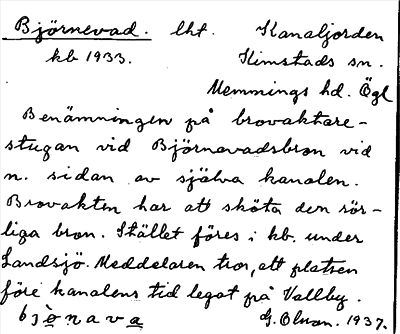 Björnevad. lht. Kanaljorden
kb 1933. Kimstads sn.
Memmings hd. Ögl
Benämningen på brovaktare-
stugan vid Björnavadsbron vid
n. sidan av själva kanalen.
Brovakten har att sköta den rör-
liga bron. Stället föres i kb. under
Landsjö. Meddelaren tror, att platsen
före kanalens tid legat på Vallby.
bjònava G. Olson. 1937.